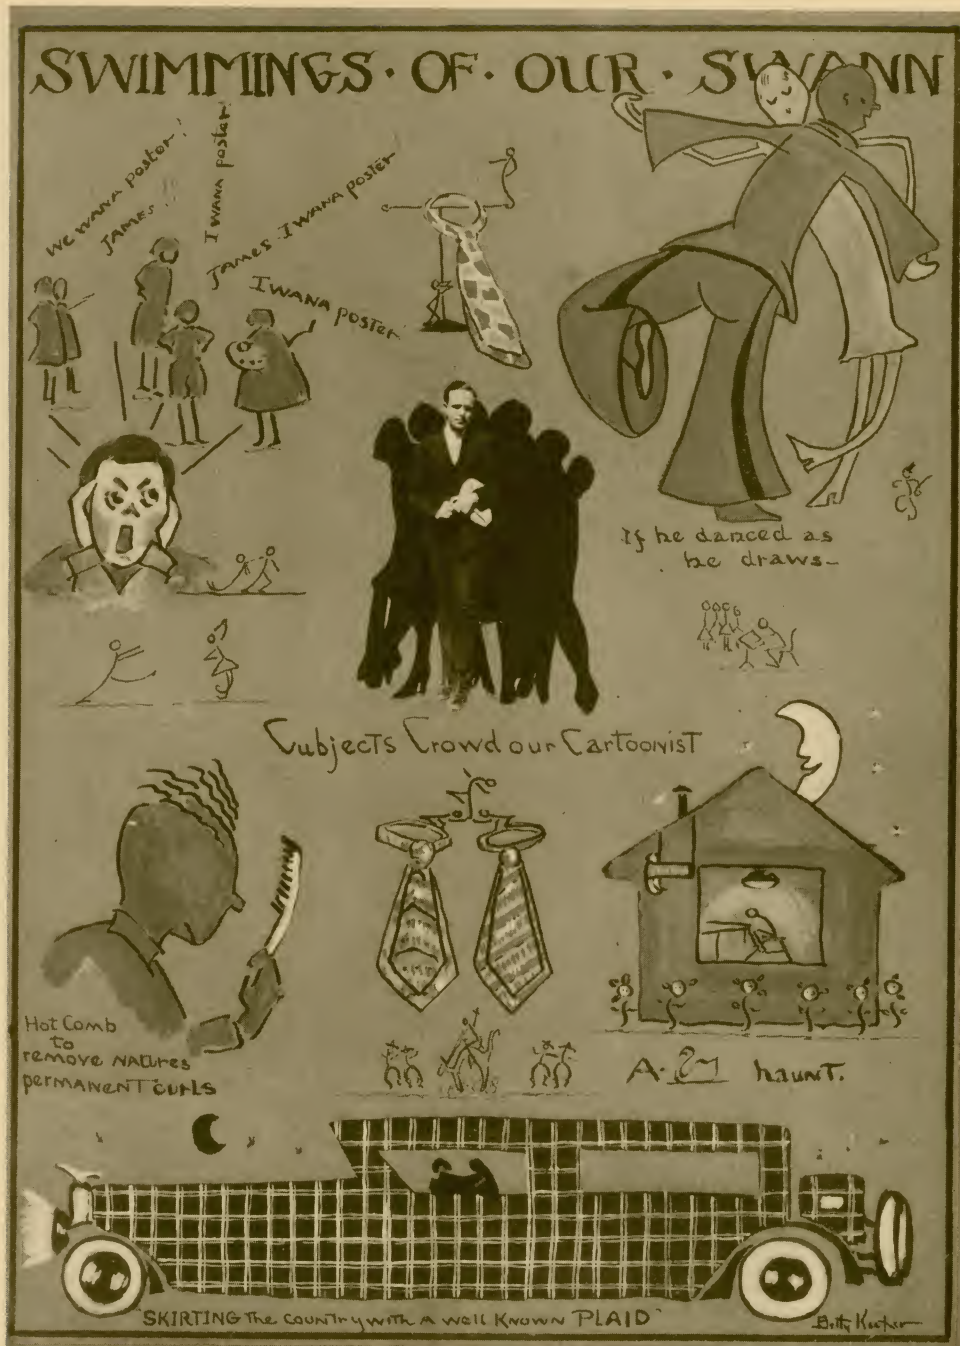 SWIMMINGS · OF · OUR · SWANN
WE WANA POSTER!
JAMES!!
I WANA POSTER
JAMES I WANA POSTER
I WANA POSTER
If he danced as
he draws-
Cubjects Crowd our Cartoonist
Hot Comb
to
remove Natures
permanent curls
A- haunt.
"SKIRTING the country with A well Known PLAID"
Betty